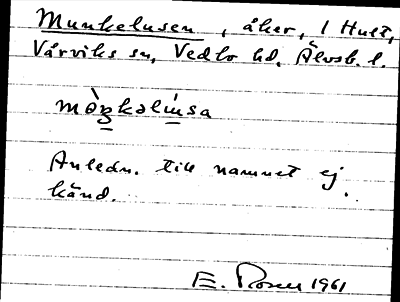 Munkelusen, åker, 1 Hult,
Värviks sn, Vedbo hd, Älvsb. l.
Anledn. till namnet ej
känd.
E. Rosén 1961